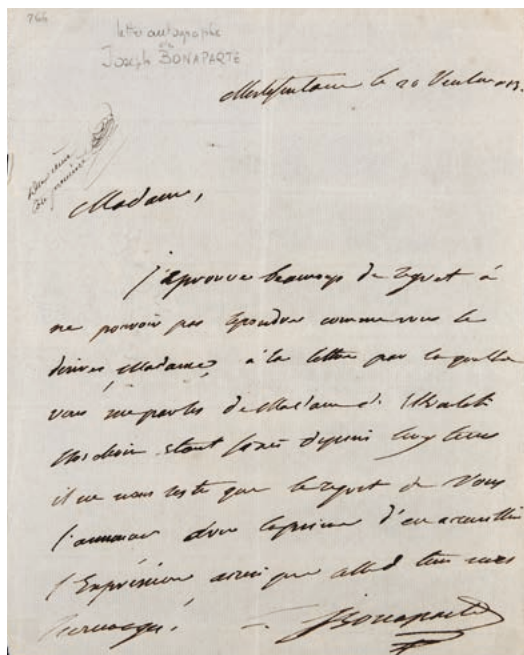 766
lettre autographe
de
Joseph BONAPARTE
le 20
Madame,
J'éprouve beaucoup de regret à
ne pouvoir pas répondre comme vous le
désirez Madame, à la lettre par laquelle
vous me parlez de Madame de
choix étant fixé depuis long tems
il ne nous reste que le regret de vous
l'annoncer avec la prière d'en accueillir
l'Expression ainsi que celle de mes
hommages.
JBonaparte